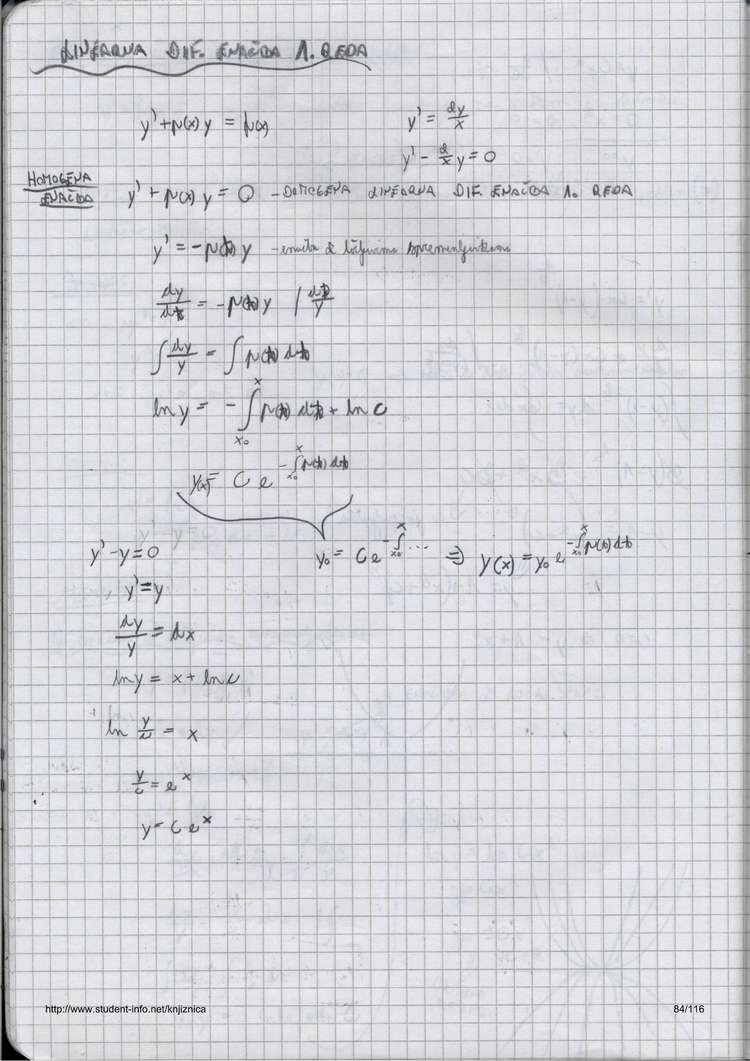 LINEARNA DIF. ENAČBA 1. REDA
y' + p(x) y = r(x)
y' = 2y/x
y' - 2/x y = 0
HOMOGENA ENAČBA
y' + p(x) y = 0 - HOMOGENA LINEARNA DIF. ENAČBA 1. REDA
y' = -p(x) y - enačba z ločljivima spremenljivkama
dy/dx = -p(x) y /
∫ dy/y = ∫ p(x) dx
ln y = - ∫_{x₀}^{x} p(t) dt + ln C
y(x) = C e^{-∫_{x₀}^{x} p(t) dt}
y₀ = C e^{-∫_{x₀}^{x} ...} ⇒ y(x) = y₀ e^{-∫_{x₀}^{x} p(t) dt}
y' - y = 0
y' = y
dy/y = dx
ln y = x + ln c
ln y/c = x
y/c = e^x
y = C e^x
http://www.student-info.net/knjiznica
84/116